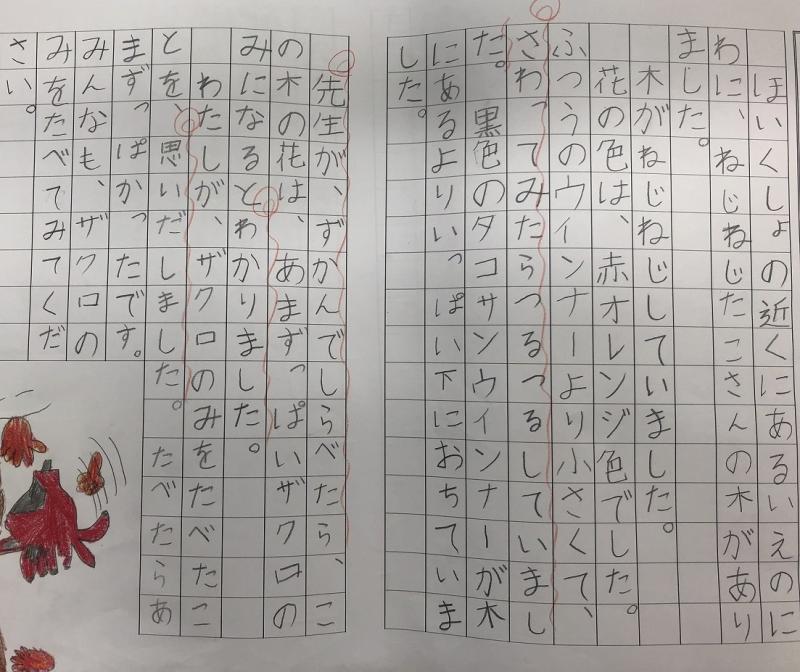 ほいくしょの近くにあるいえのに
わに、ねじねじたこさんの木があり
ました。
木がねじねじしていました。
花の色は、赤オレンジ色でした。
ふつうのウインナーより小さくて、
さわってみたらつるつるしていまし
た。黒色のタコサンウインナーが木
にあるよりいっぱい下におちていま
した。
先生が、ずかんでしらべたら、こ
の木の花は、あまずっぱいザクロの
みになるとわかりました。
わたしが、ザクロのみをたべたこ
とを、思いだしました。たべたらあ
まずっぱかったです。
みんなも、ザクロの
みをたべてみてくだ
さい。